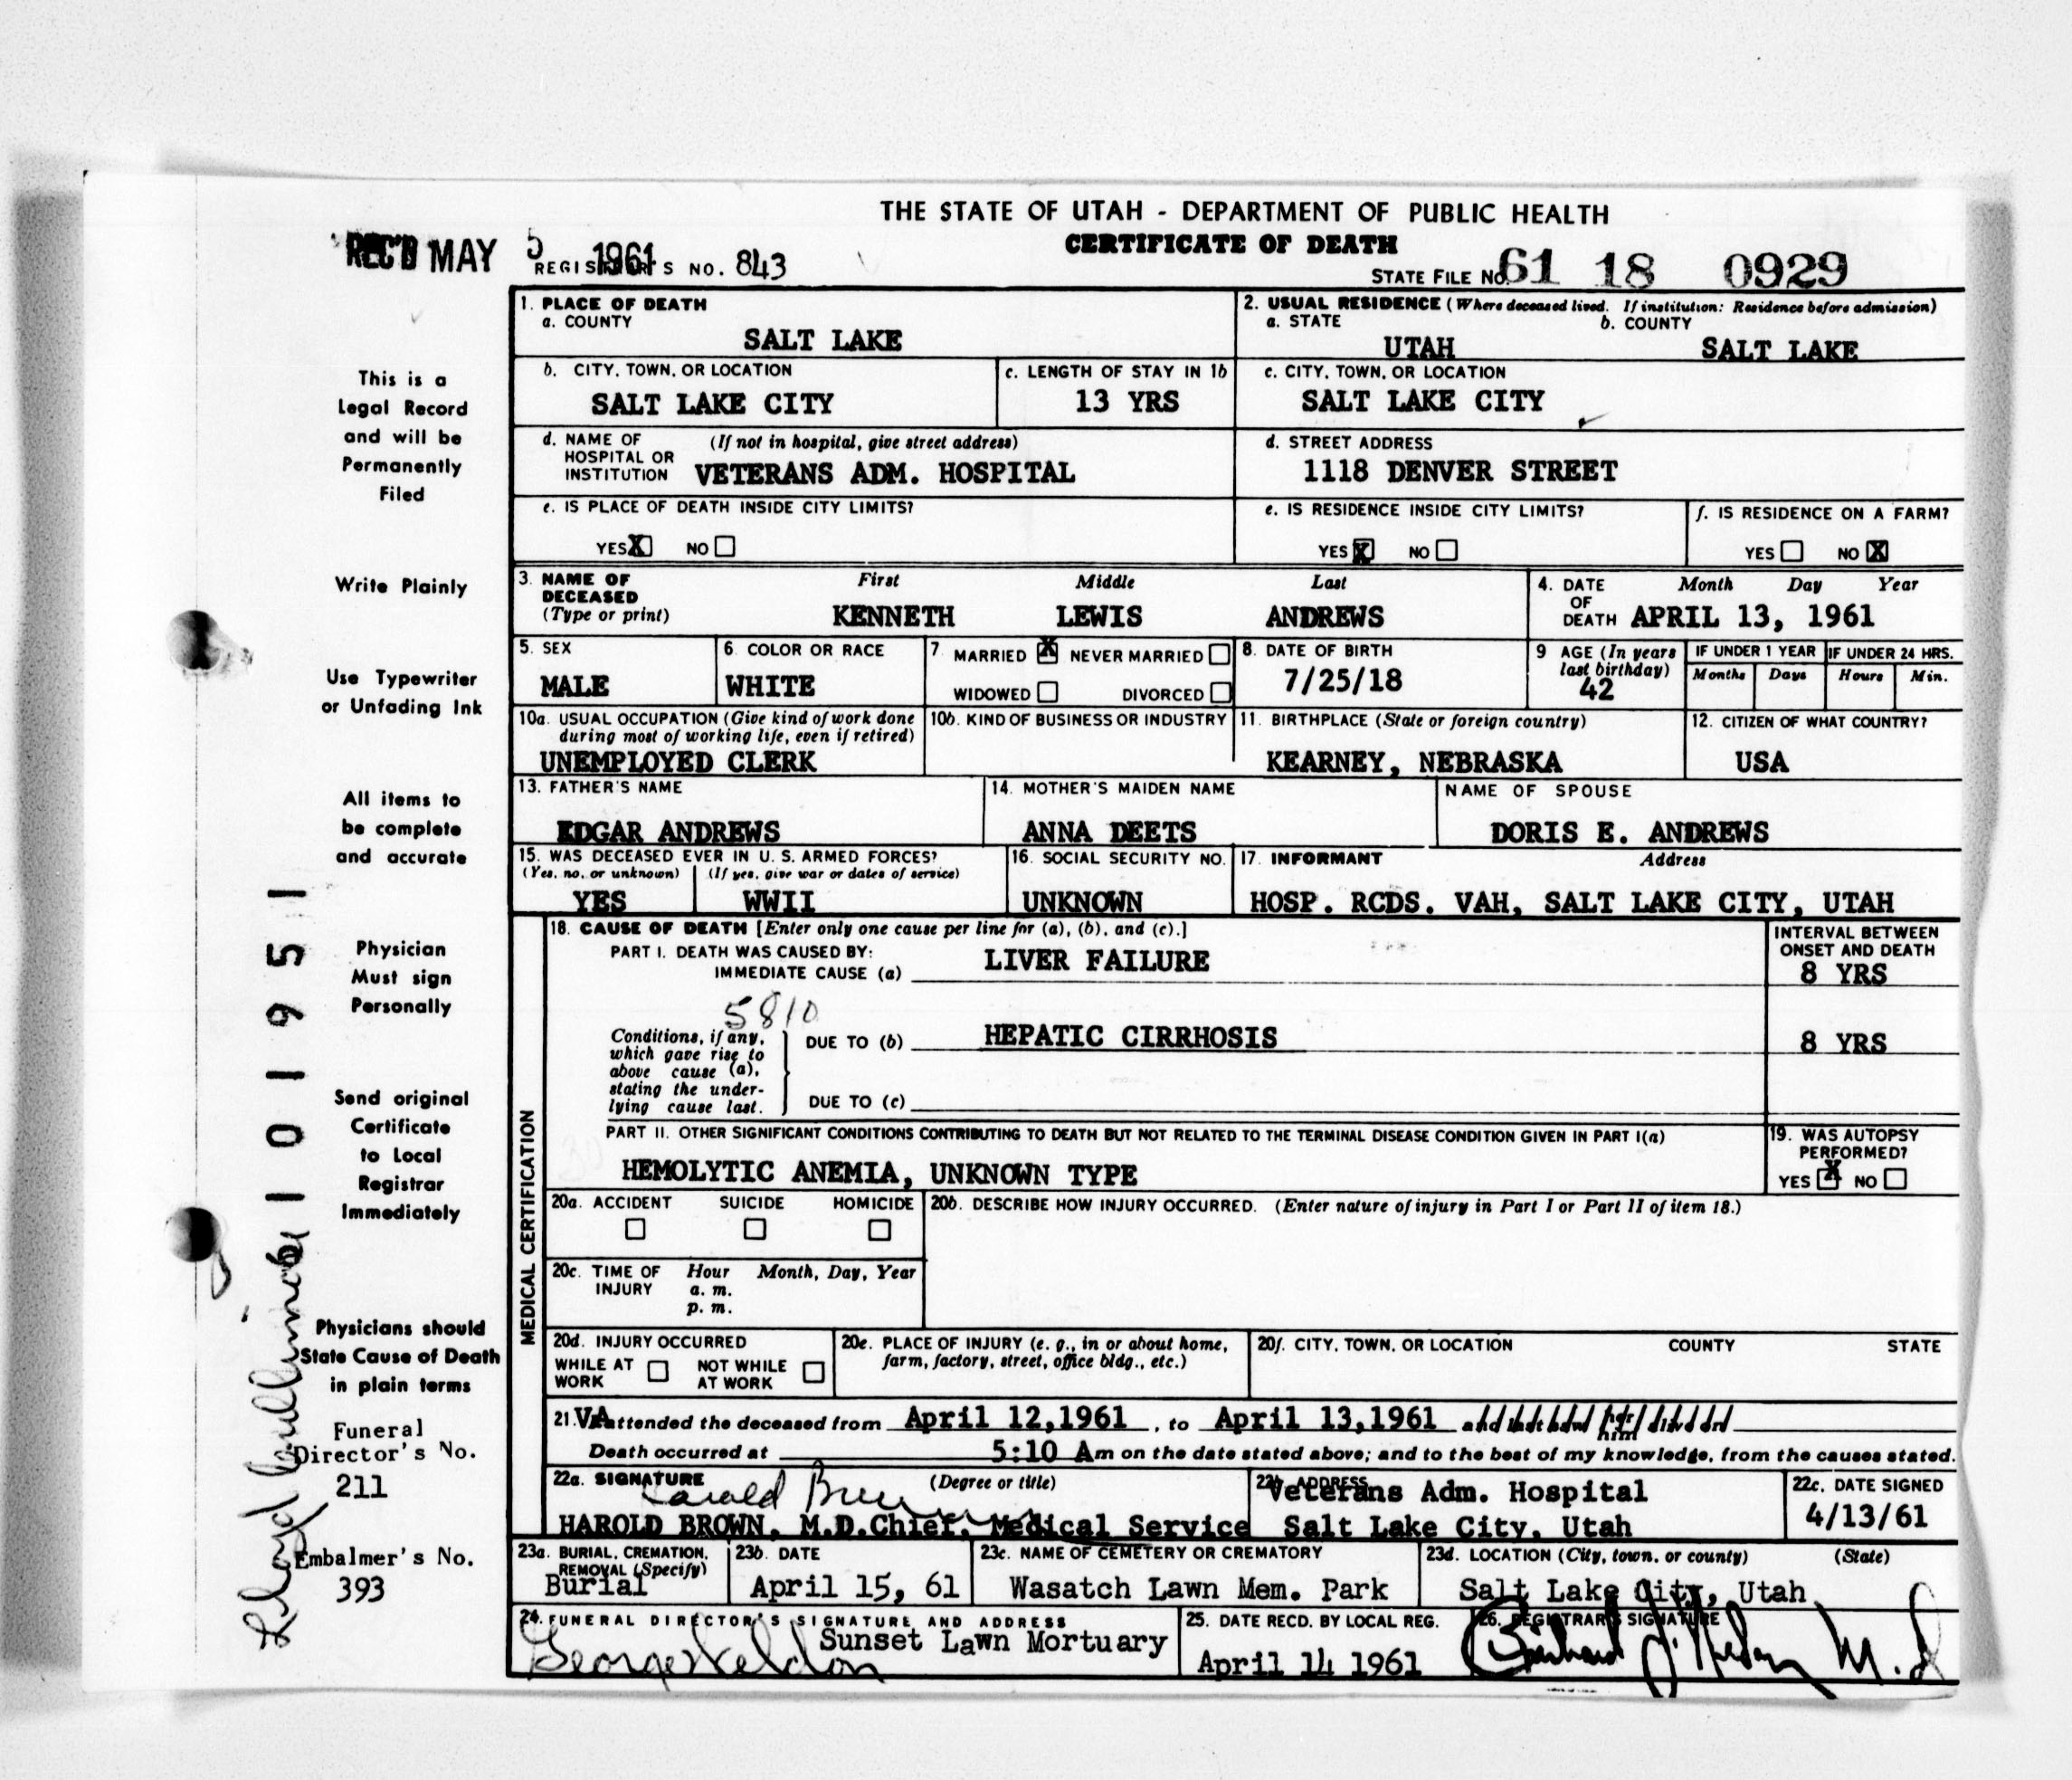 THE STATE OF UTAH - DEPARTMENT OF PUBLIC HEALTH
CERTIFICATE OF DEATH
REC'D MAY 5 1961
REGISTRAR'S NO. 843
STATE FILE NO. 61 18 0929
1. PLACE OF DEATH
a. COUNTY
SALT LAKE
2. USUAL RESIDENCE (Where deceased lived. If institution: Residence before admission)
a. STATE b. COUNTY
UTAH SALT LAKE
b. CITY, TOWN, OR LOCATION
SALT LAKE CITY
c. LENGTH OF STAY IN 1b
13 YRS
c. CITY, TOWN, OR LOCATION
SALT LAKE CITY
d. NAME OF HOSPITAL OR INSTITUTION (If not in hospital, give street address)
VETERANS ADM. HOSPITAL
d. STREET ADDRESS
1118 DENVER STREET
e. IS PLACE OF DEATH INSIDE CITY LIMITS?
YES X NO
e. IS RESIDENCE INSIDE CITY LIMITS?
YES X NO
f. IS RESIDENCE ON A FARM?
YES NO X
3. NAME OF DECEASED (Type or print)
First Middle Last
KENNETH LEWIS ANDREWS
4. DATE OF DEATH Month Day Year
APRIL 13, 1961
5. SEX
MALE
6. COLOR OR RACE
WHITE
7. MARRIED X NEVER MARRIED
WIDOWED DIVORCED
8. DATE OF BIRTH
7/25/18
9 AGE (In years last birthday)
42
IF UNDER 1 YEAR IF UNDER 24 HRS.
Months Days Hours Min.
10a. USUAL OCCUPATION (Give kind of work done during most of working life, even if retired)
UNEMPLOYED CLERK
10b. KIND OF BUSINESS OR INDUSTRY
11. BIRTHPLACE (State or foreign country)
KEARNEY, NEBRASKA
12. CITIZEN OF WHAT COUNTRY?
USA
13. FATHER'S NAME
EDGAR ANDREWS
14. MOTHER'S MAIDEN NAME
ANNA DEETS
NAME OF SPOUSE
DORIS E. ANDREWS
15. WAS DECEASED EVER IN U. S. ARMED FORCES?
(Yes, no, or unknown) (If yes, give war or dates of service)
YES WWII
16. SOCIAL SECURITY NO.
UNKNOWN
17. INFORMANT Address
HOSP. RCDS. VAH, SALT LAKE CITY, UTAH
MEDICAL CERTIFICATION
18. CAUSE OF DEATH [Enter only one cause per line for (a), (b), and (c).]
PART I. DEATH WAS CAUSED BY:
IMMEDIATE CAUSE (a) LIVER FAILURE
INTERVAL BETWEEN ONSET AND DEATH
8 YRS
5810
Conditions, if any, which gave rise to above cause (a), stating the underlying cause last.
DUE TO (b) HEPATIC CIRRHOSIS
8 YRS
DUE TO (c)
PART II. OTHER SIGNIFICANT CONDITIONS CONTRIBUTING TO DEATH BUT NOT RELATED TO THE TERMINAL DISEASE CONDITION GIVEN IN PART I(a)
HEMOLYTIC ANEMIA, UNKNOWN TYPE
19. WAS AUTOPSY PERFORMED?
YES X NO
20a. ACCIDENT SUICIDE HOMICIDE
20b. DESCRIBE HOW INJURY OCCURRED. (Enter nature of injury in Part I or Part II of item 18.)
20c. TIME OF INJURY Hour Month, Day, Year
a. m.
p. m.
20d. INJURY OCCURRED
WHILE AT WORK NOT WHILE AT WORK
20e. PLACE OF INJURY (e. g., in or about home, farm, factory, street, office bldg., etc.)
20f. CITY, TOWN, OR LOCATION COUNTY STATE
21. VA attended the deceased from April 12,1961, to April 13,1961 and last saw her him alive on
Death occurred at 5:10 Am on the date stated above; and to the best of my knowledge, from the causes stated.
22a. SIGNATURE (Degree or title)
Harold Brown
HAROLD BROWN, M.D. Chief, Medical Service
22b. ADDRESS
Veterans Adm. Hospital
Salt Lake City, Utah
22c. DATE SIGNED
4/13/61
23a. BURIAL, CREMATION, REMOVAL (Specify)
Burial
23b. DATE
April 15, 61
23c. NAME OF CEMETERY OR CREMATORY
Wasatch Lawn Mem. Park
23d. LOCATION (City, town, or county) (State)
Salt Lake City, Utah
24. FUNERAL DIRECTOR'S SIGNATURE AND ADDRESS
Sunset Lawn Mortuary
25. DATE RECD. BY LOCAL REG.
April 14 1961
26. REGISTRAR'S SIGNATURE
M.D
This is a
Legal Record
and will be
Permanently
Filed
Write Plainly
Use Typewriter
or Unfading Ink
All items to
be complete
and accurate
Physician
Must sign
Personally
Send original
Certificate
to Local
Registrar
Immediately
Physicians should
State Cause of Death
in plain terms
Funeral
Director's No.
211
Embalmer's No.
393
Lloyd
1 0 1 9 5 1